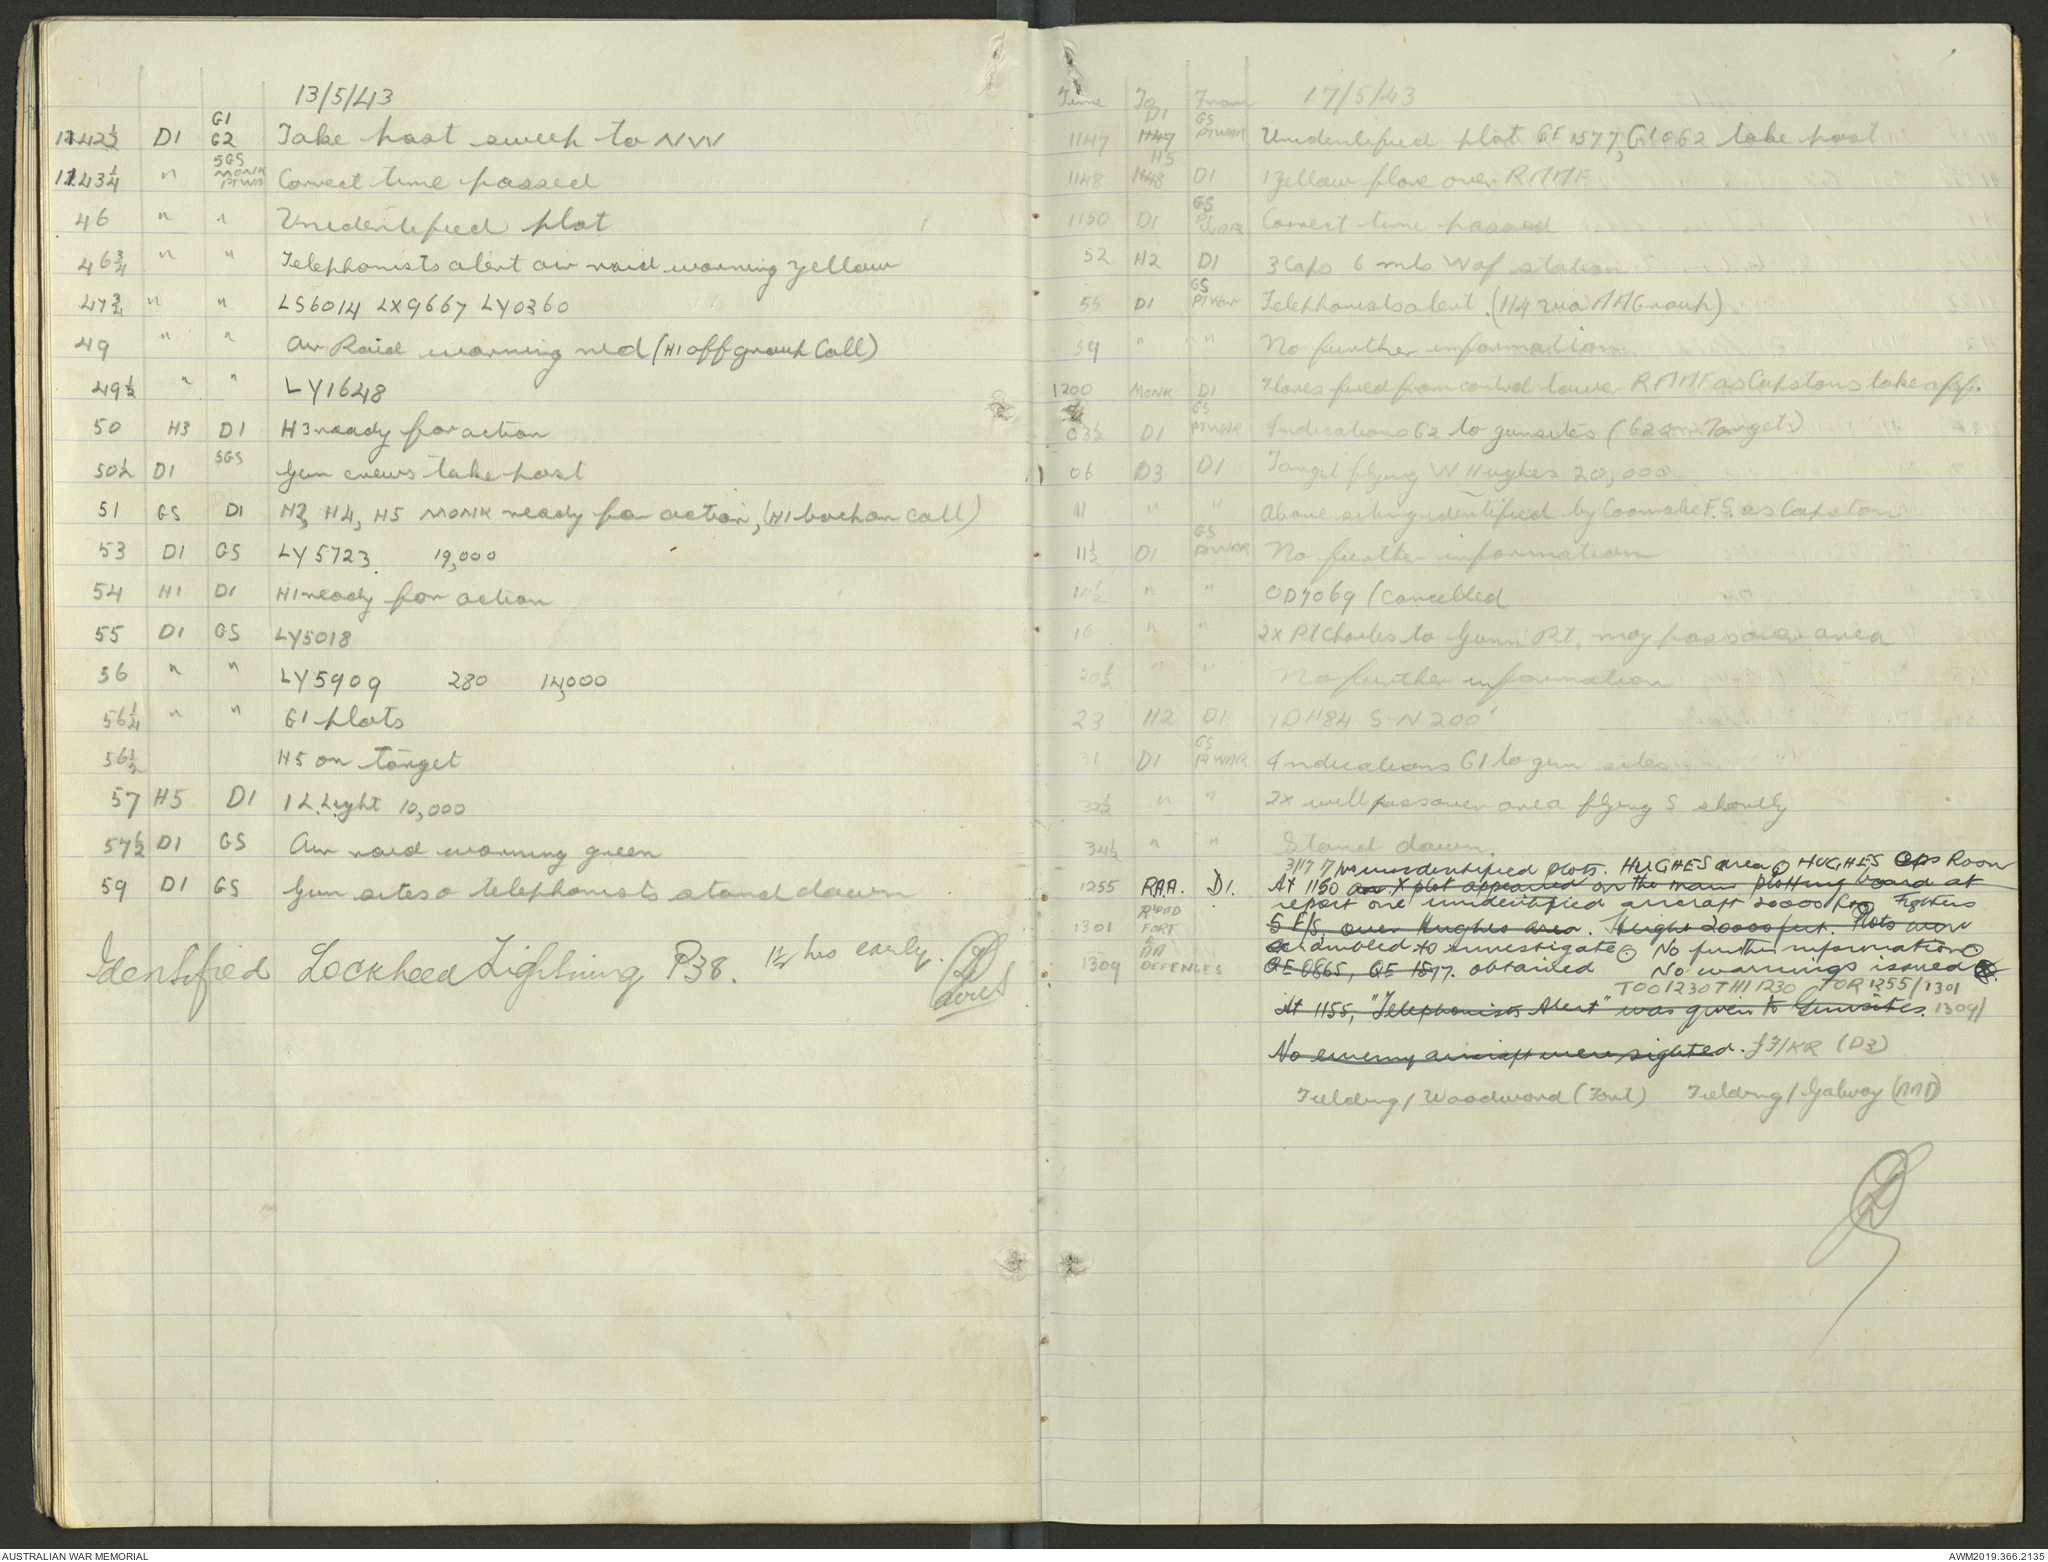 13/5/43
G1
1142½ D1 G2 Take post sweep to NW
1143¼ " 5GS MONK PTWR Correct time passed
46 " " Unidentified plot
46¾ " " Telephonists alert air raid warning yellow
47¾ " " LS6014 LX9667 LY0360
49 " " Air Raid warning red (H1 off group Call)
49½ " " LY1648
50 H3 D1 H3 ready for action
50½ D1 5GS Gun crews take post
51 GS D1 H2, H4, H5 MONK ready for action, (H1 back on call)
53 D1 GS LY5723 19,000
54 H1 D1 H1 ready for action
55 D1 GS LY5018
56 " " LY5909 280 14,000
56¼ " " G1 plots
56½ H5 on target
57 H5 D1 1 L. Light 10,000
57½ D1 GS Air raid warning green
59 D1 GS Gun sites & telephonists stand down
Identified Lockheed Lightning P38. 1½ hrs early.
Time To From 17/5/43
1147 D1 GS PTWAR Unidentified plot QE 1577, G1 & G2 take post
1148 H5 D1 1 yellow flare over RAAF
1150 D1 GS PTWAR Correct time passed
52 H2 D1 3 Caps 6 mls W of station
55 D1 GS PTWAR Telephonists alert. (H4 via AA Group)
59 " " " No further information
1200 MONK D1 Flares fired from control tower RAAF as Capstans take off.
03½ D1 GS PTWAR Indications G2 to gunsites (G2 on Target)
06 D3 D1 Target flying W Hughes 20,000
11 " " Above siting identified by Coomalie F.S. as Capstan
11½ D1 GS PTWAR No further information
14½ " " OD7069 / Cancelled
16 " " 2X Pt Charles to Gunn Pt. may pass over area
20½ " " No further information
23 H2 D1 1D1184 S-N 200'
31 D1 GS PTWAR Indications G1 to gun sites
32½ " " 2X will pass over area flying S shortly
34½ " " Stand down.
3/17 17/5 unidentified plots. HUGHES area. HUGHES Ops Room
1255 RAA. D1. At 1150 an X plot appeared on the main plotting board at
report one unidentified aircraft 20000 ft. Fighters
1301 FORT 5 F/S. over Hughes area. Height 20000 feet. Plots were
scrambled to investigate. No further information
1309 AA DEFENCES QE 0865, QE 1577. obtained No warnings issued.
TOO 1230 THI 1230 TOR 1255/1301
At 1155, "Telephonists Alert" was given to Gunsites. 1309/
No enemy aircraft were sighted. /KR (D3)
Fielding / Woodward (Fort) Fielding / Galway (AAD)
AUSTRALIAN WAR MEMORIAL
AWM2019.366.2135